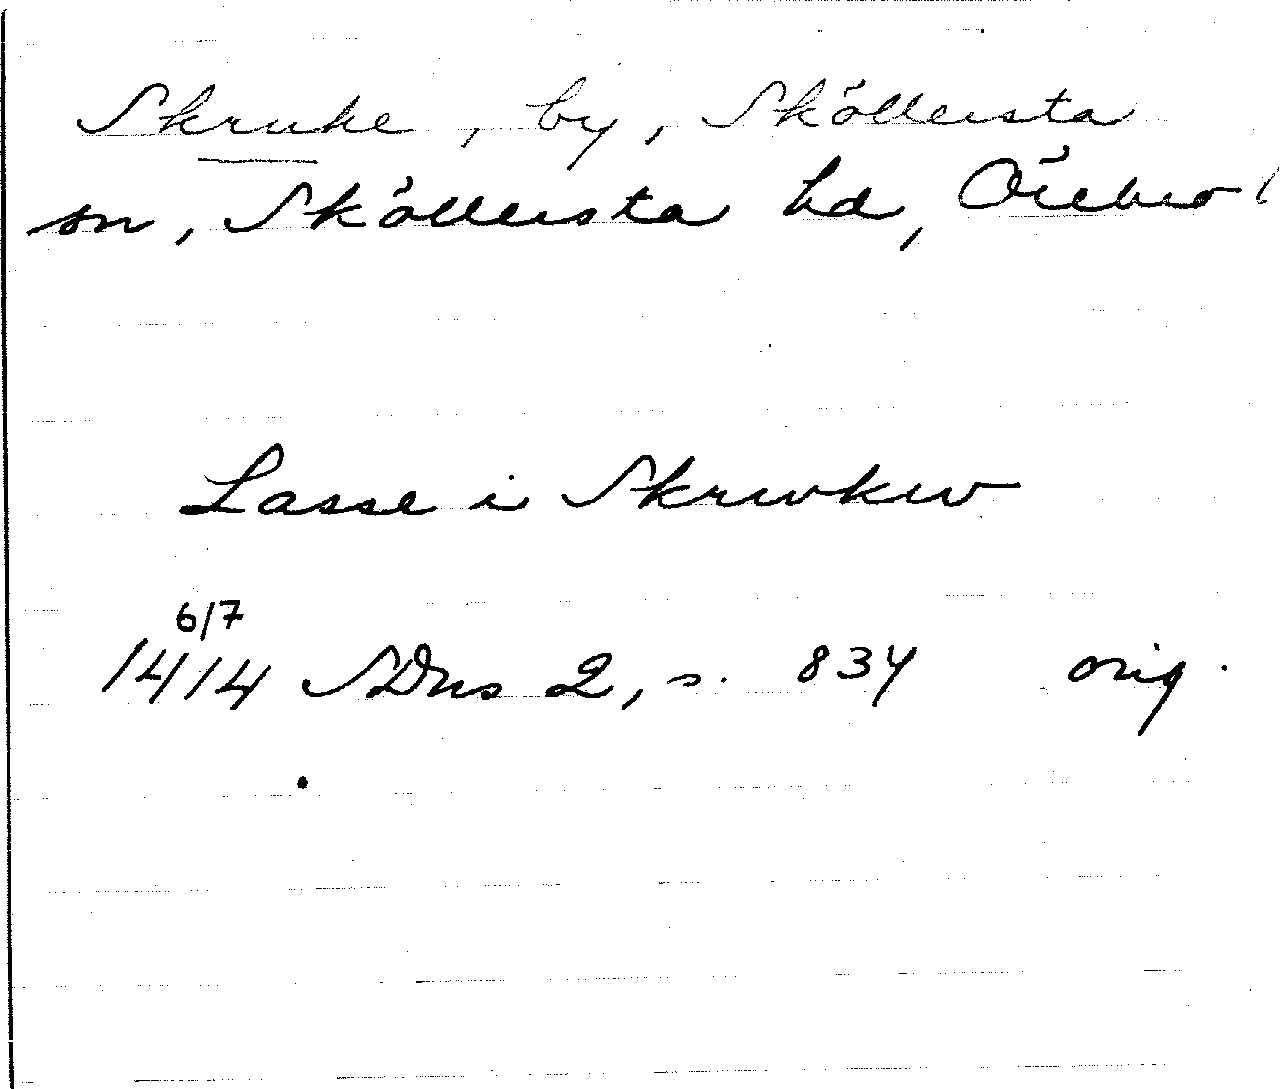 Skruke, by, Sköllersta
sn, Sköllersta hd, Örebro l
Lasse i Skrwkw
6/7
1414 SDns 2, s. 834 orig.